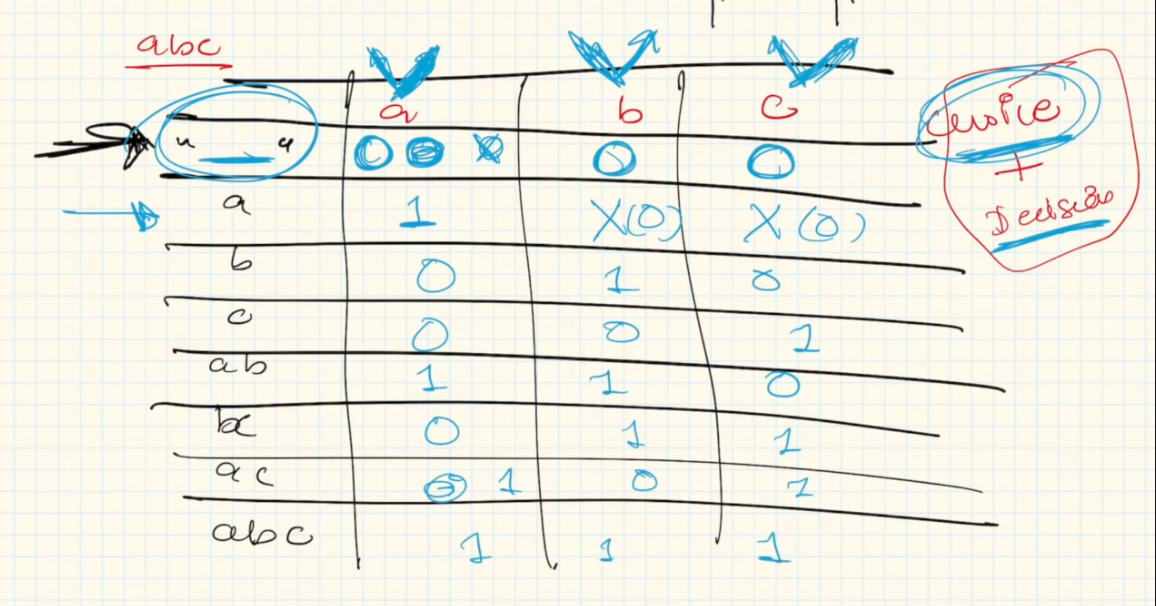 abc
a b c
" " 0 0 0
a 1 X(0) X(0)
b 0 1 0
c 0 0 1
ab 1 1 0
bc 0 1 1
ac 1 0 1
abc 1 1 1
Choice
+
Decision